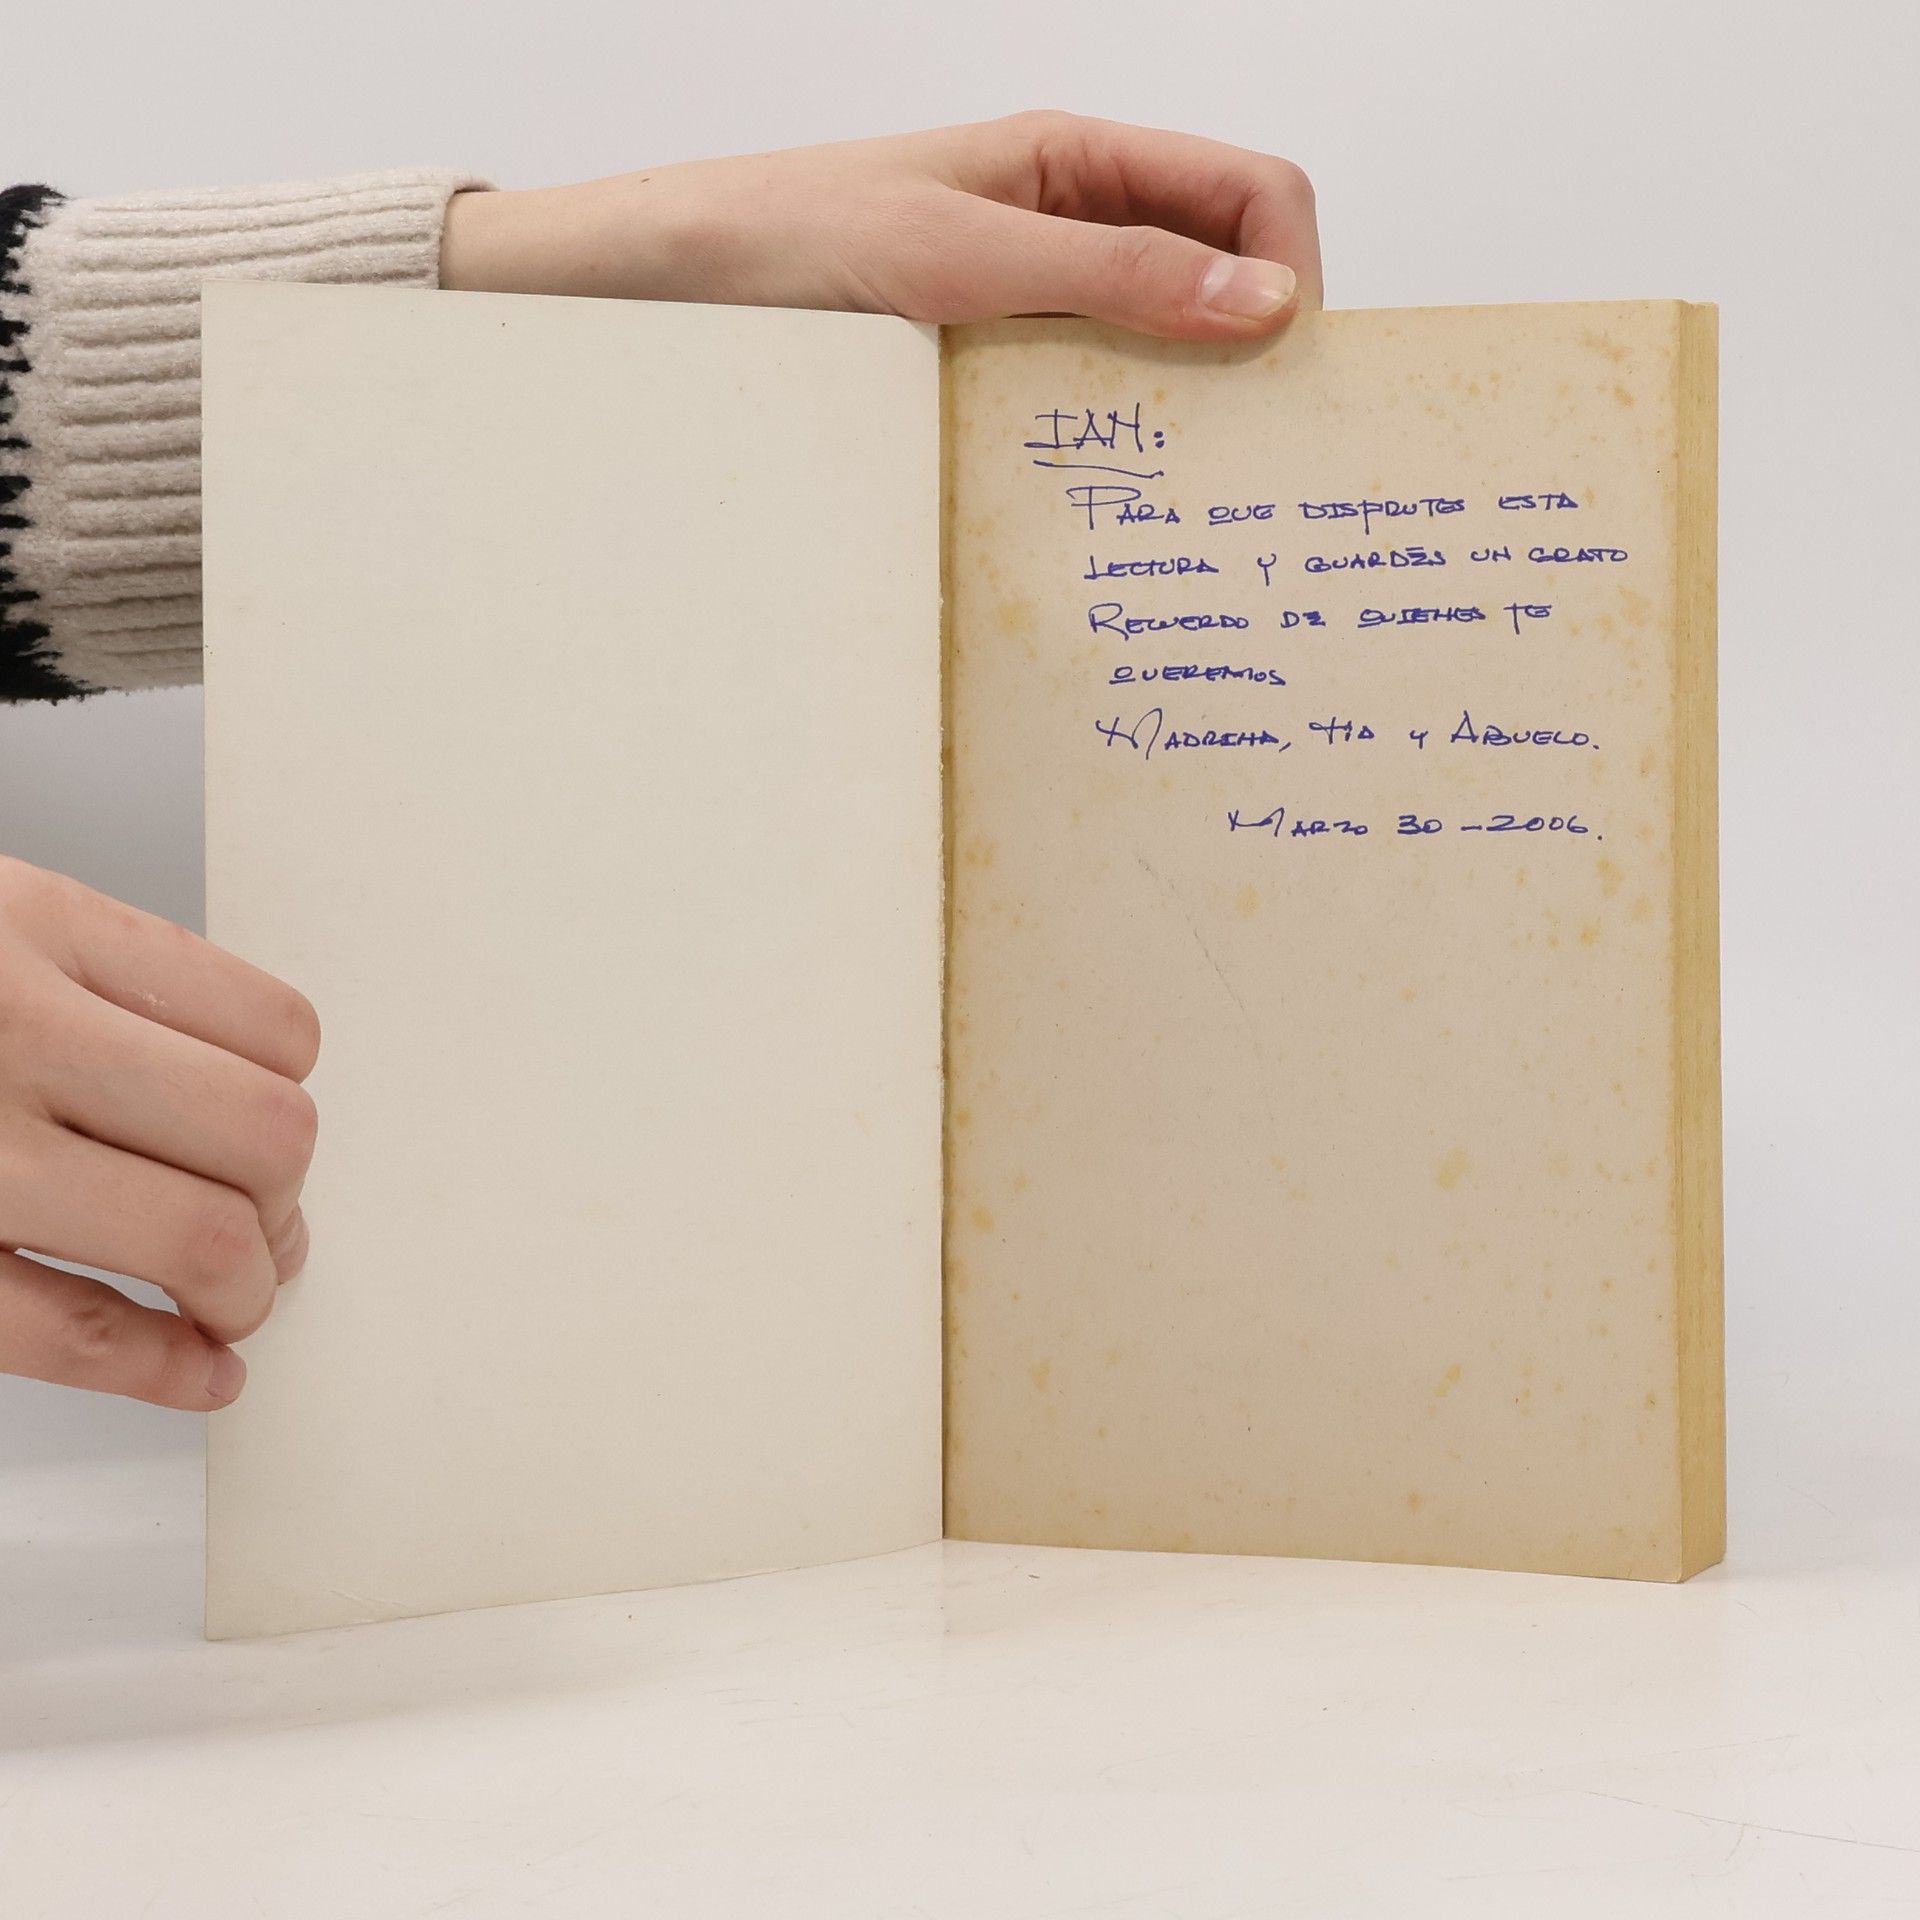 IAN:
PARA QUE DISFRUTES ESTA
LECTURA Y GUARDES UN GRATO
RECUERDO DE QUIENES TE
QUEREMOS
MADRINA, TIA Y ABUELO.
MARZO 30 - 2006.